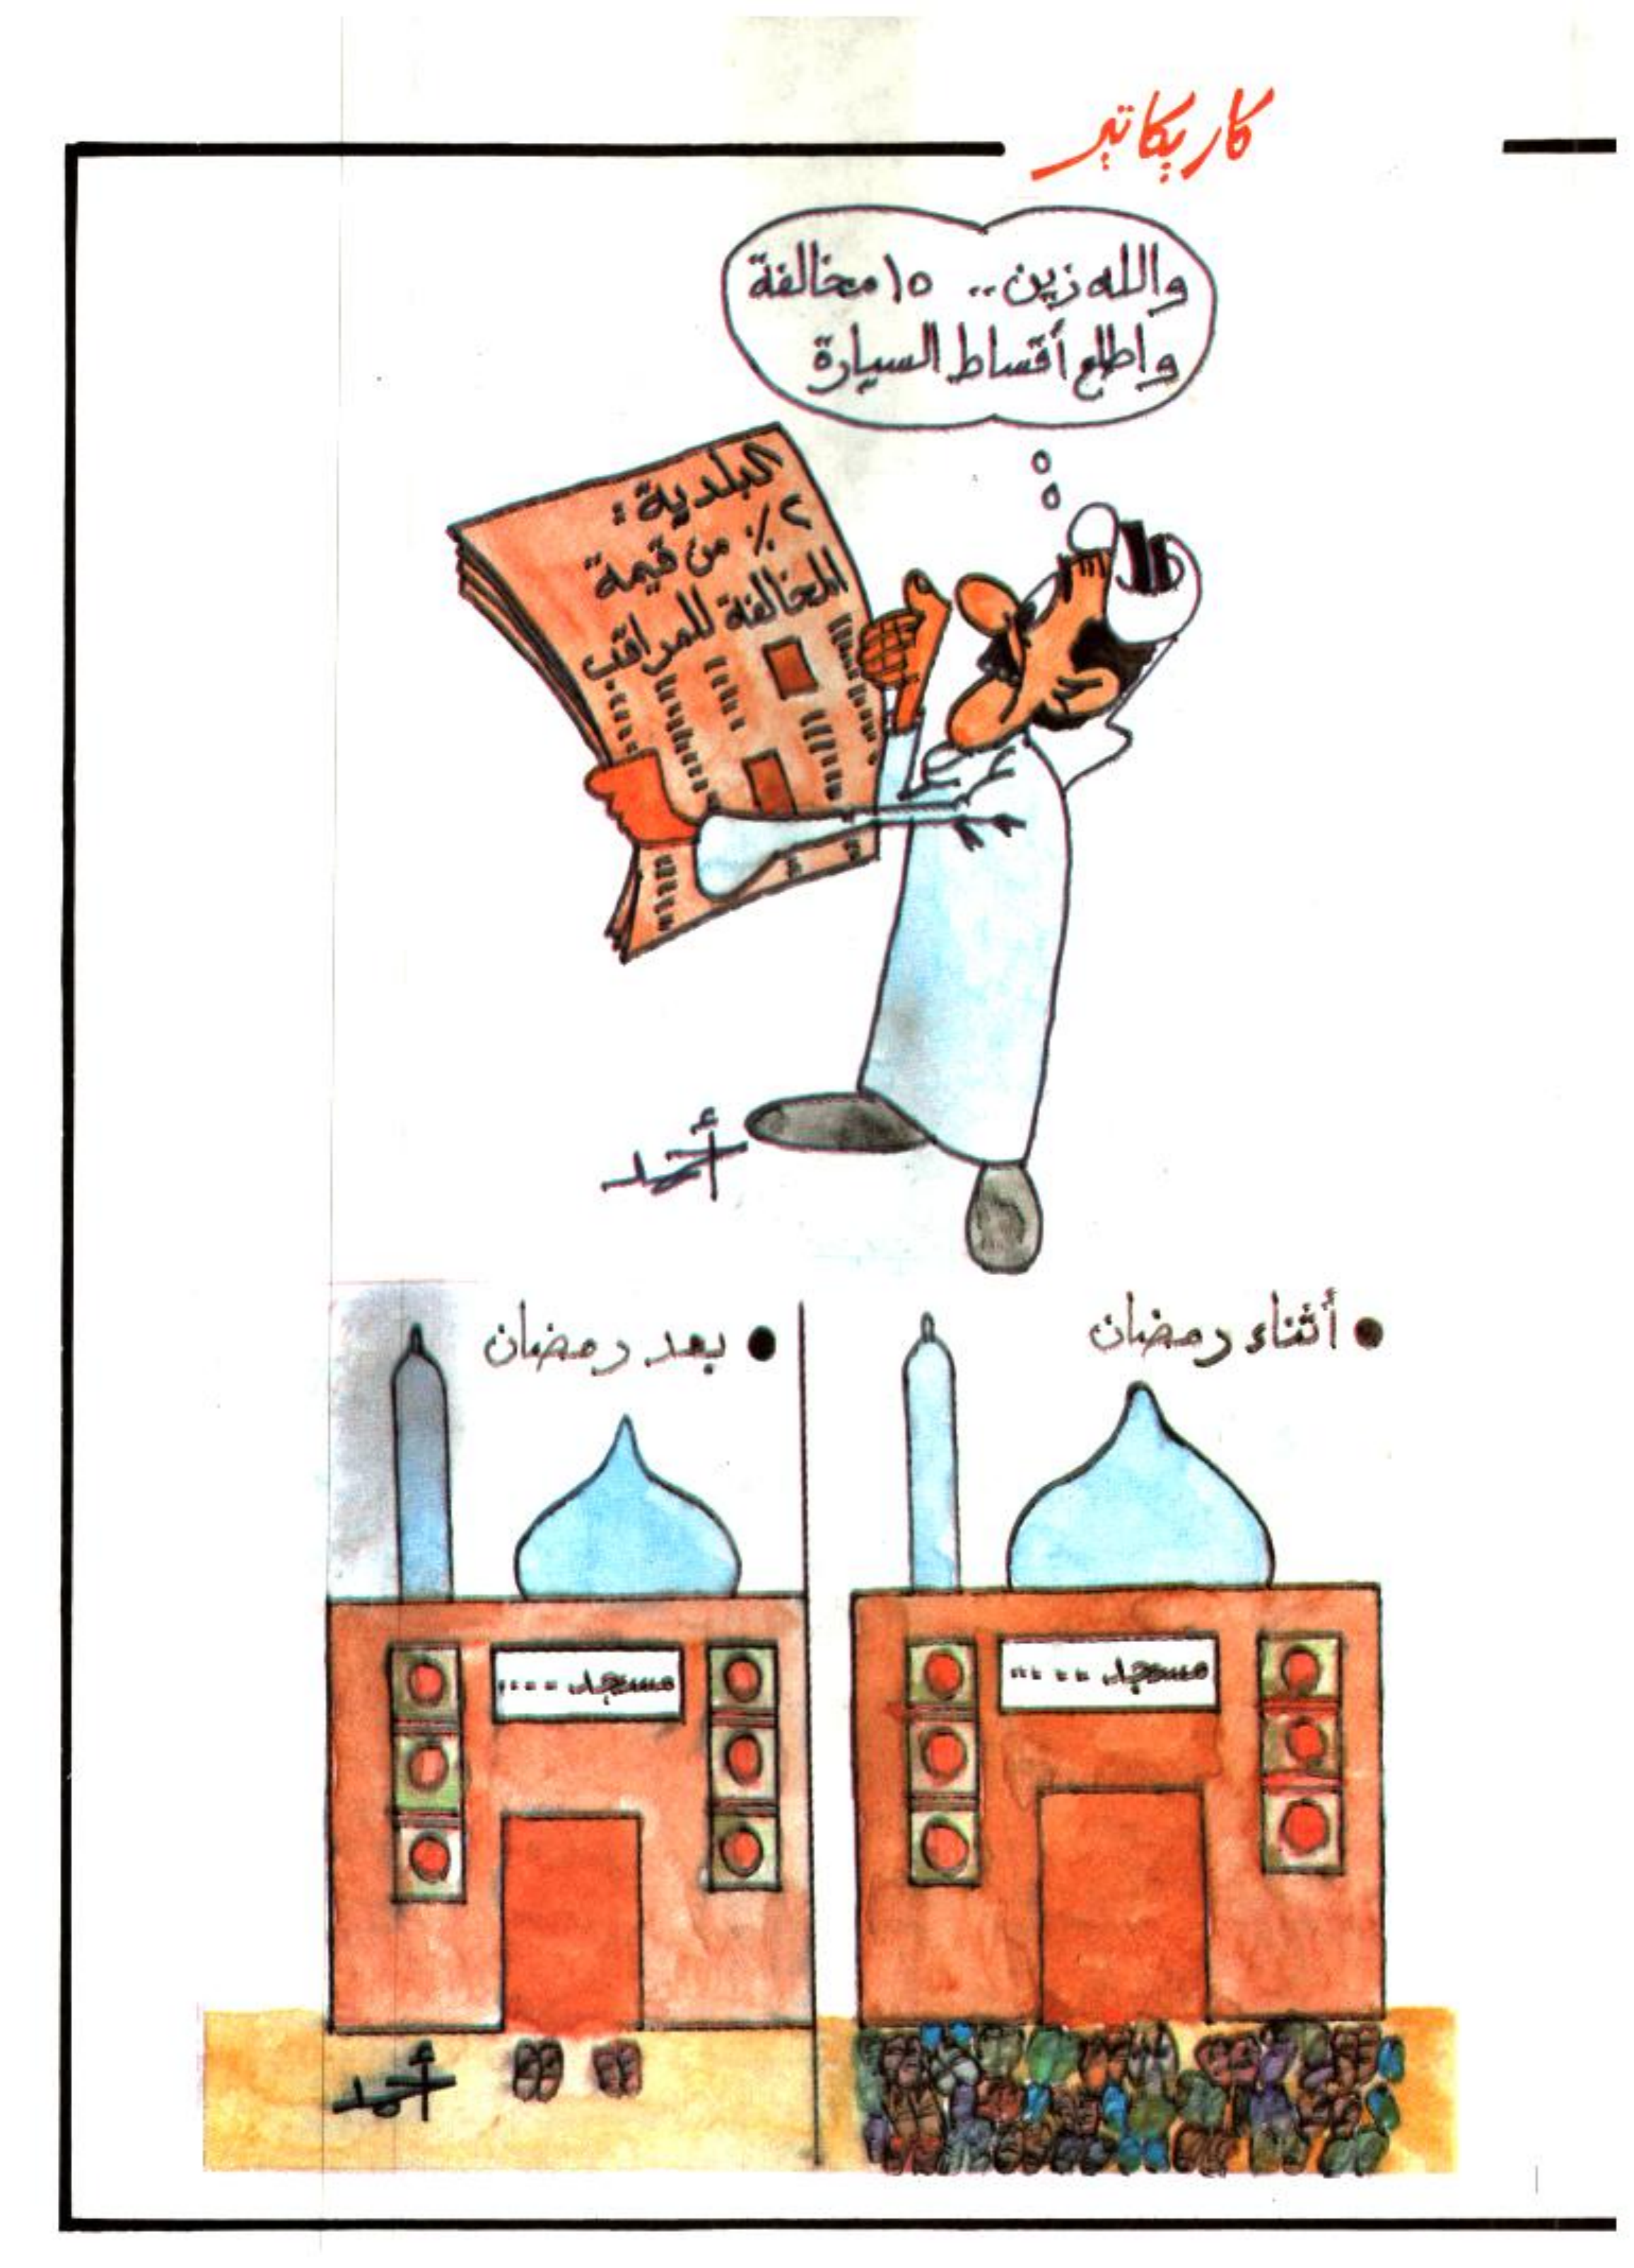 كاريكاتير
والله زين.. ١٥ مخالفة
واطلع أقساط السيارة
البلدية:
٢٪ من قيمة
المخالفة للمراقب
أحمد
• أثناء رمضان
• بعد رمضان
مسجد ....
مسجد ....
أحمد